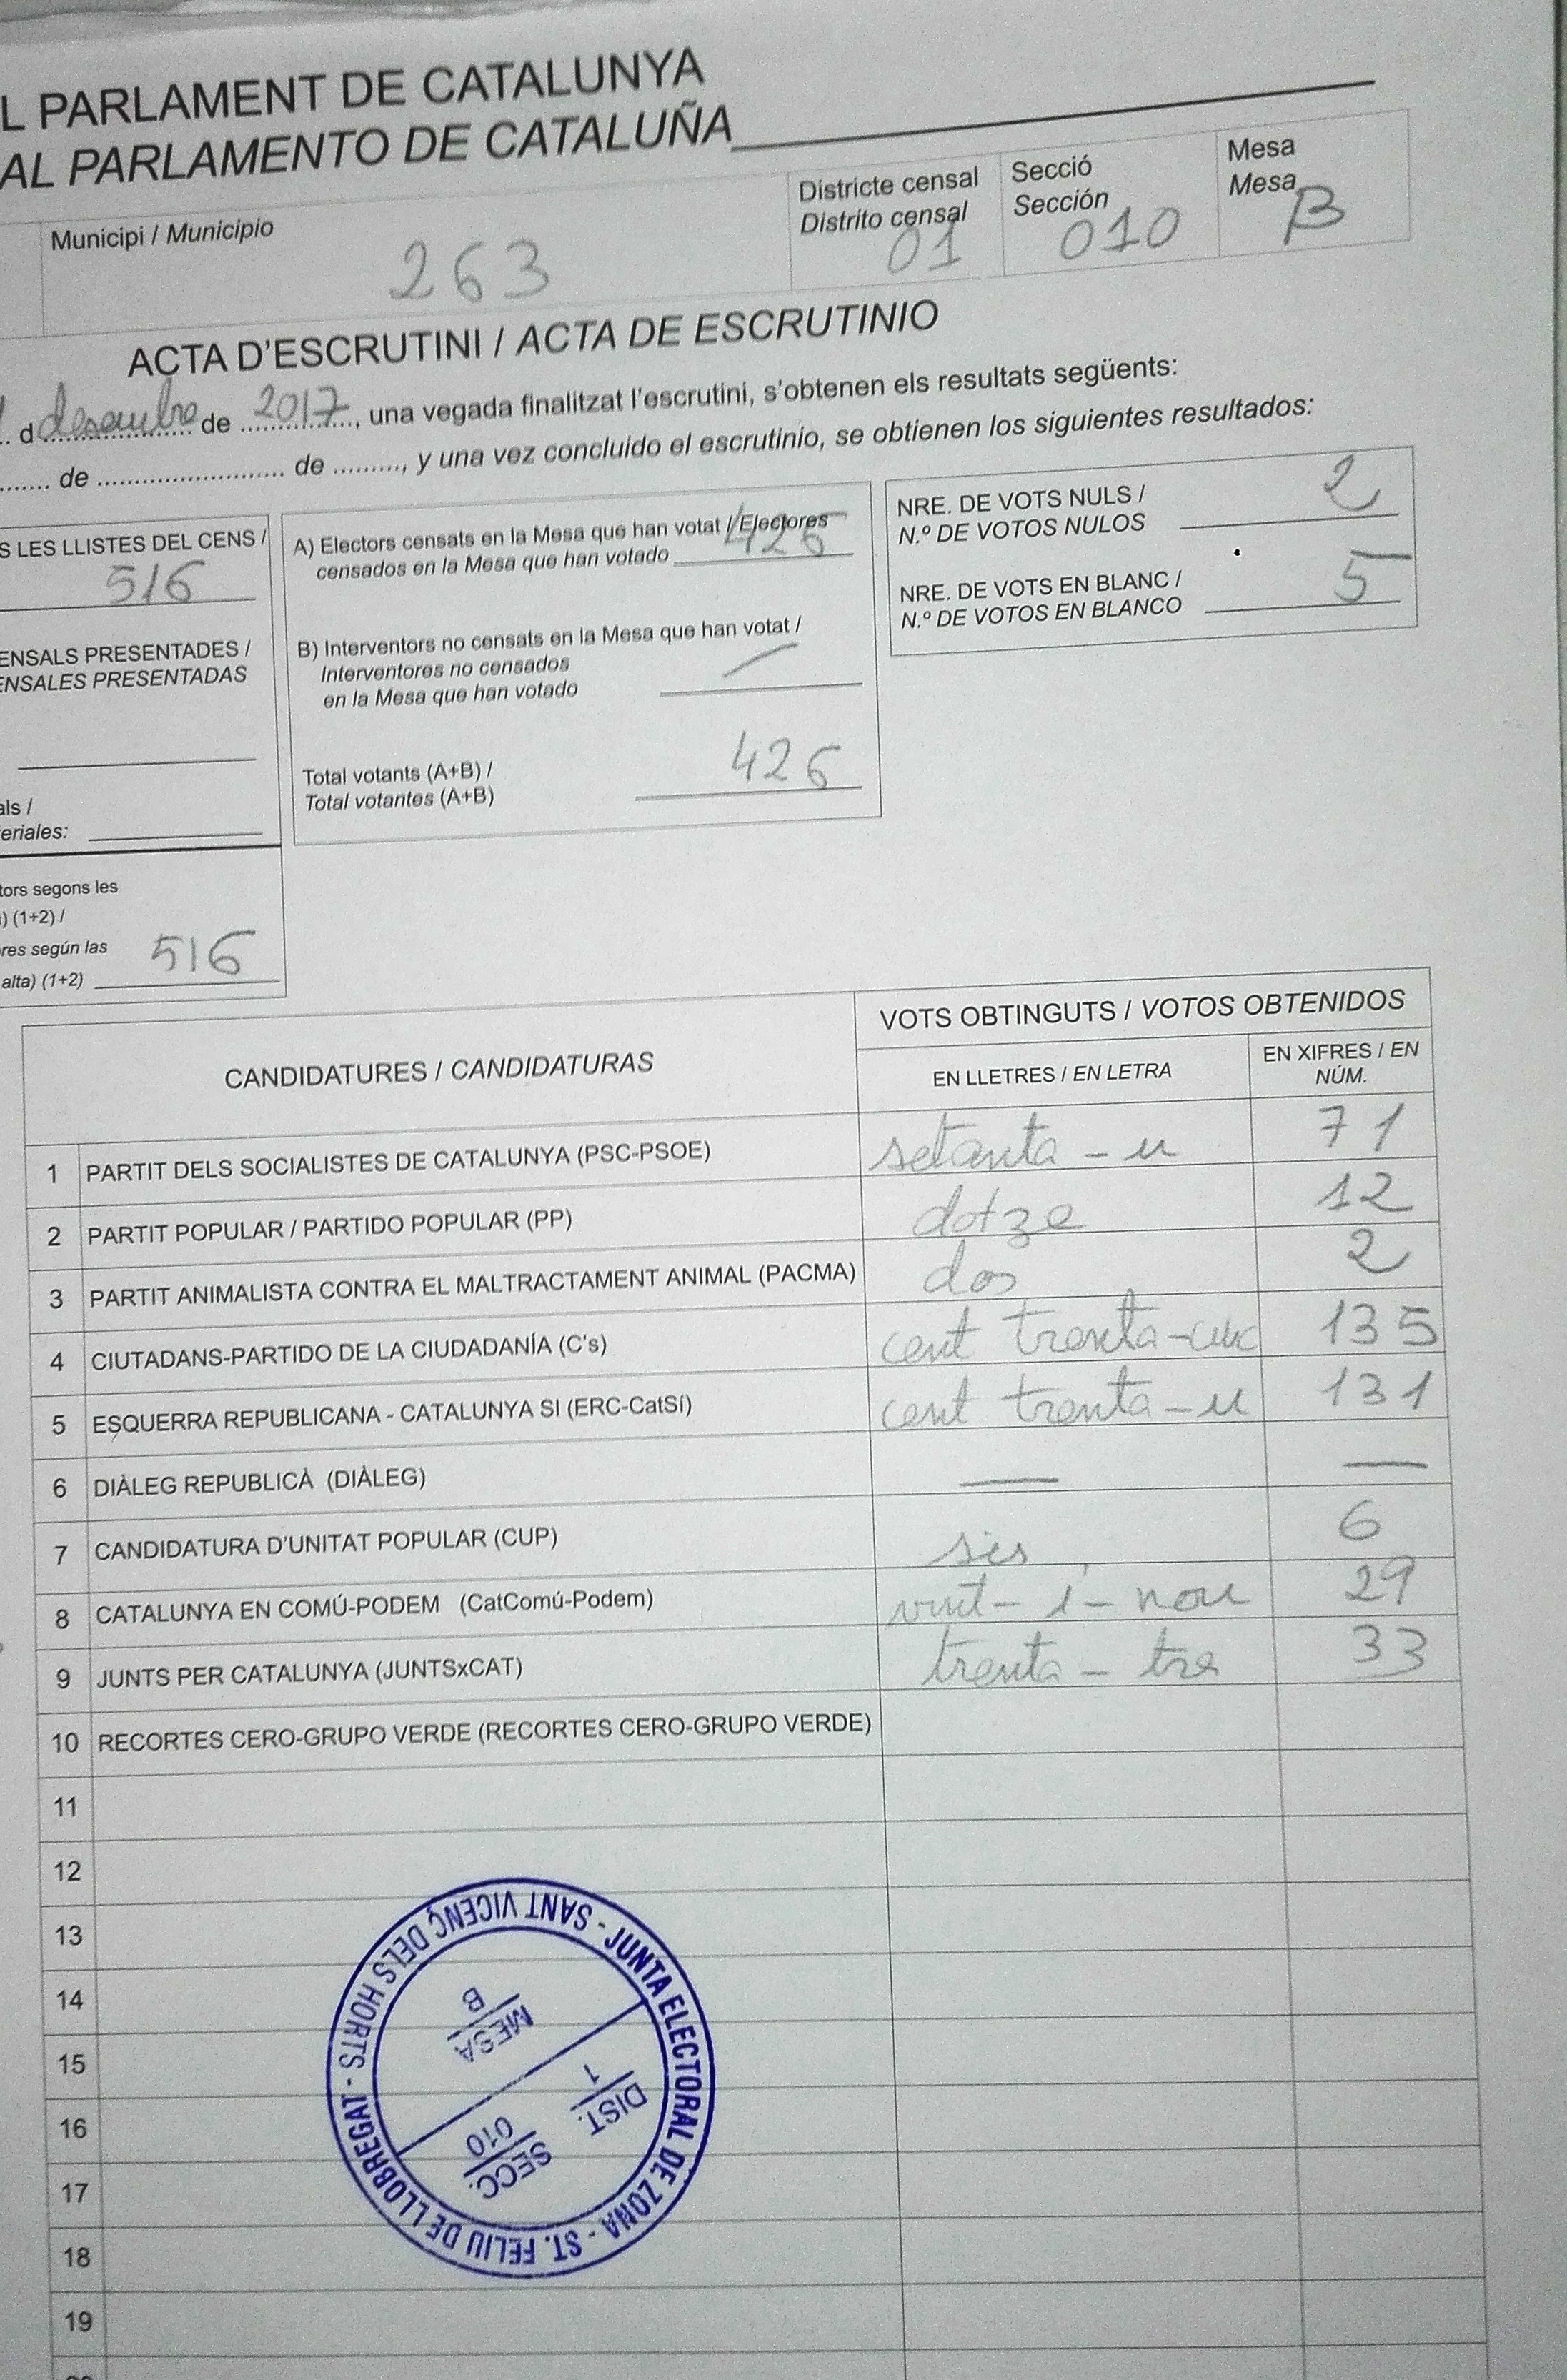 L PARLAMENT DE CATALUNYA
AL PARLAMENTO DE CATALUÑA
Municipi / Municipio
263
Districte censal
Distrito censal
01
Secció
Sección
010
Mesa
Mesa
B
ACTA D'ESCRUTINI / ACTA DE ESCRUTINIO
d desembre de 2017, una vegada finalitzat l'escrutini, s'obtenen els resultats següents:
de de , y una vez concluido el escrutinio, se obtienen los siguientes resultados:
S LES LLISTES DEL CENS /
516
ENSALS PRESENTADES /
ENSALES PRESENTADAS
als /
eriales:
tors segons les
) (1+2) /
res según las
alta) (1+2) 516
A) Electors censats en la Mesa que han votat / Electores
censados en la Mesa que han votado 426
B) Interventors no censats en la Mesa que han votat /
Interventores no censados
en la Mesa que han votado
Total votants (A+B) /
Total votantes (A+B)
426
NRE. DE VOTS NULS /
N.º DE VOTOS NULOS 2
NRE. DE VOTS EN BLANC /
N.º DE VOTOS EN BLANCO 5
CANDIDATURES / CANDIDATURAS
VOTS OBTINGUTS / VOTOS OBTENIDOS
EN LLETRES / EN LETRA
EN XIFRES / EN
NÚM.
1 PARTIT DELS SOCIALISTES DE CATALUNYA (PSC-PSOE) setanta - u 71
2 PARTIT POPULAR / PARTIDO POPULAR (PP) dotze 12
3 PARTIT ANIMALISTA CONTRA EL MALTRACTAMENT ANIMAL (PACMA) dos 2
4 CIUTADANS-PARTIDO DE LA CIUDADANÍA (C's) cent trenta-cinc 135
5 ESQUERRA REPUBLICANA - CATALUNYA SI (ERC-CatSí) cent trenta-u 131
6 DIÀLEG REPUBLICÀ (DIÀLEG) — —
7 CANDIDATURA D'UNITAT POPULAR (CUP) sis 6
8 CATALUNYA EN COMÚ-PODEM (CatComú-Podem) vint-i-nou 29
9 JUNTS PER CATALUNYA (JUNTSxCAT) trenta-tres 33
10 RECORTES CERO-GRUPO VERDE (RECORTES CERO-GRUPO VERDE)
11
12
13
14
15
16
17
18
19
JUNTA ELECTORAL DE ZONA - ST. FELIU DE LLOBREGAT - SANT VICENÇ DELS HORTS -
DIST.
1
SECC.
010
MESA
B